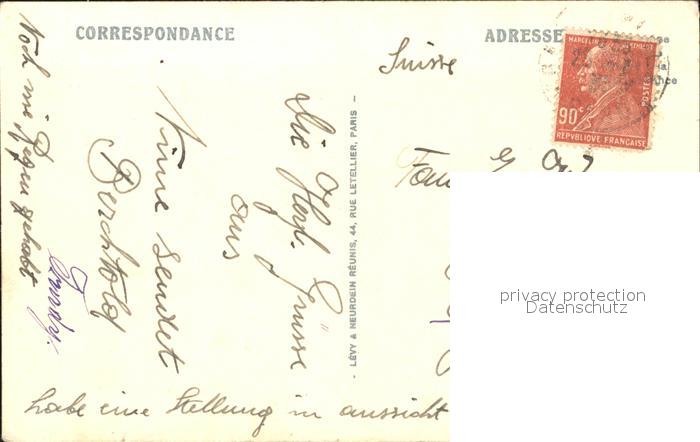 CORRESPONDANCE
ADRESSE
Suisse
MARCELIN BERTHELOT
POSTES
90c
REPUBLIQUE FRANÇAISE
Die Herzl. Grüsse
aus
Nîme sendet
Berchtold
Noch nie Regen gehabt
Trudy.
habe eine Stellung in aussicht
- LÉVY & NEURDEIN RÉUNIS, 44, RUE LETELLIER, PARIS -
privacy protection
Datenschutz